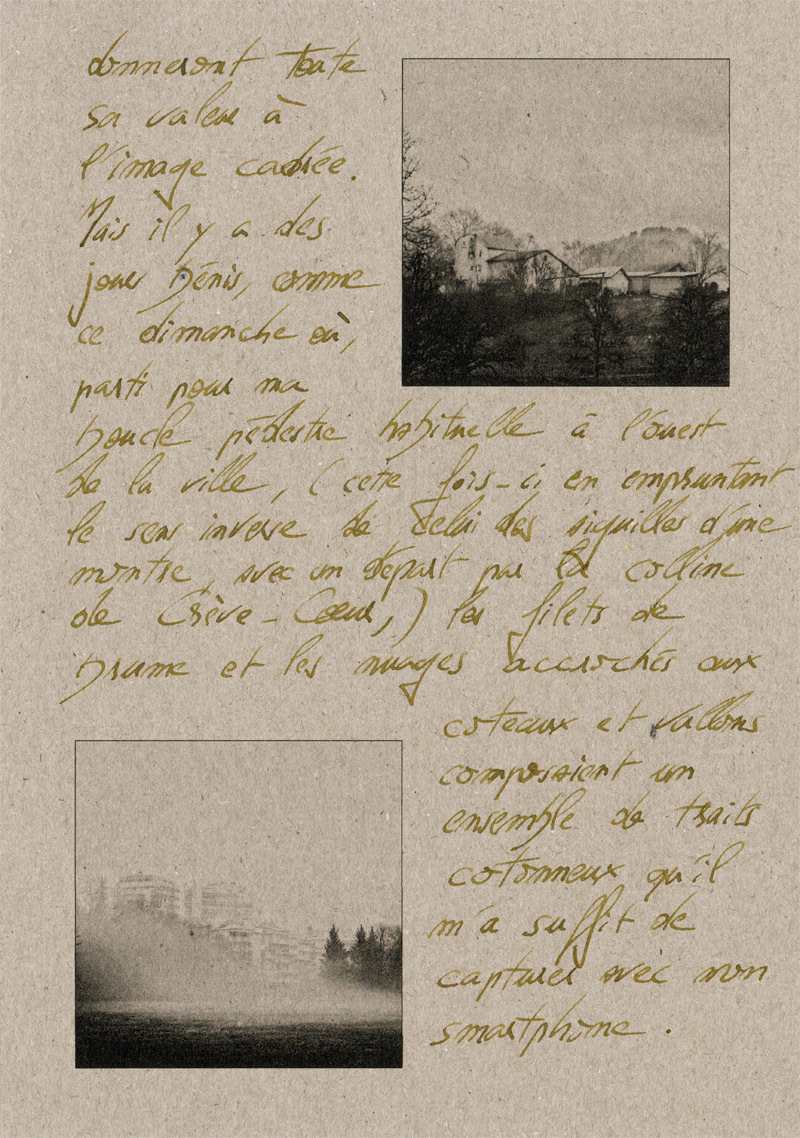 donneront toute
sa valeur à
l'image cadrée.
Mais il y a des
jours bénis, comme
ce dimanche où,
parti pour ma
boucle pédestre habituelle à l'ouest
de la ville, (cette fois-ci en empruntant
le sens inverse de celui des aiguilles d'une
montre, avec un départ par la colline
de Crève-Cœur,) les filets de
brume et les nuages accrochés aux
coteaux et vallons
composaient un
ensemble de traits
cotonneux qu'il
m'a suffit de
capturer avec mon
smartphone.